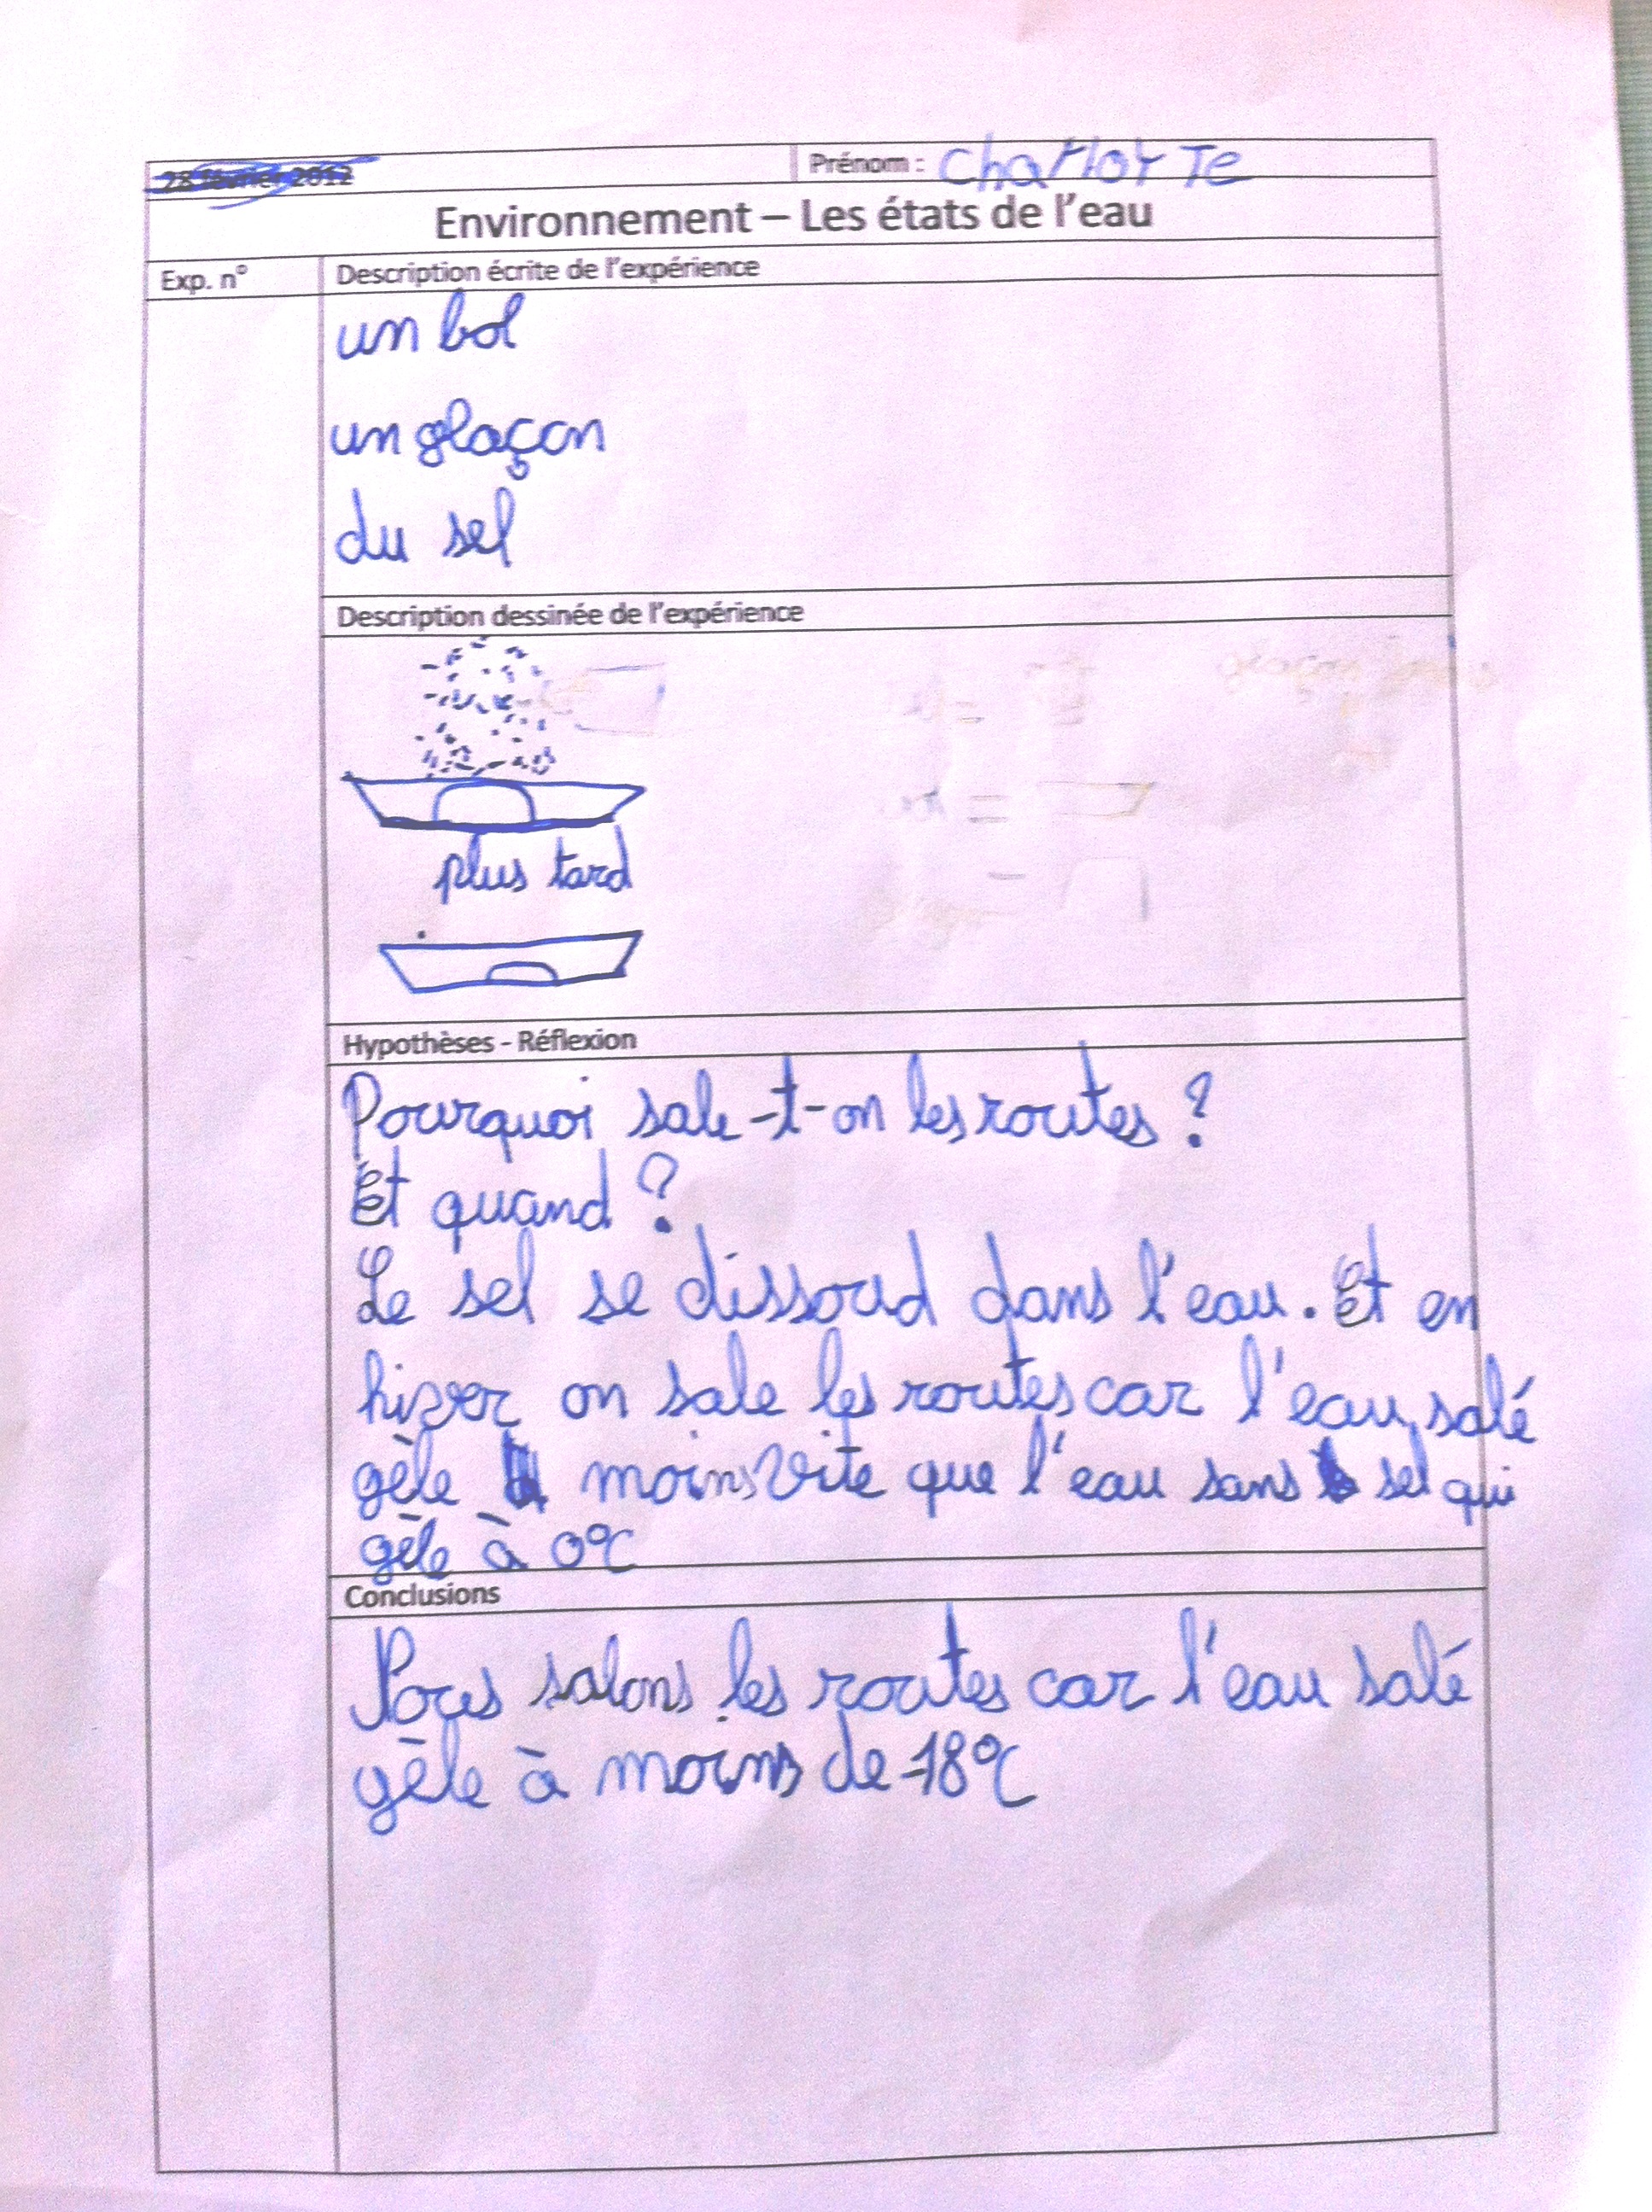 28 février 2012
Prénom : Charlotte
Environnement – Les états de l'eau
Exp. n°
Description écrite de l'expérience
un bol
un glaçon
du sel
Description dessinée de l'expérience
plus tard
Hypothèses - Réflexion
Pourquoi sale-t-on les routes ?
Et quand ?
Le sel se dissoud dans l'eau. Et en
hiver on sale les routes car l'eau salé
gèle moins vite que l'eau sans sel qui
gèle à 0°C
Conclusions
Nous salons les routes car l'eau salé
gèle à moins de -18°C